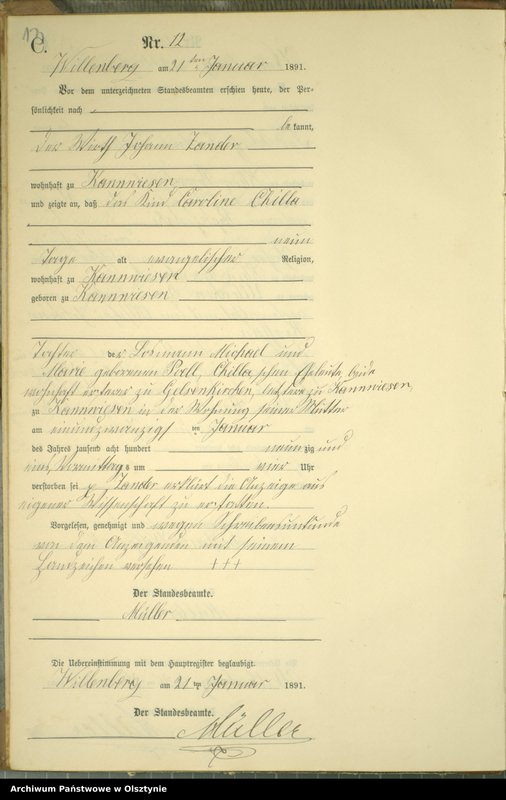 C.
Nr. 12
Willenberg am 21ten Januar 1891.
Vor dem unterzeichneten Standesbeamten erschien heute, der Per-
sönlichkeit nach
bekannt,
der Wirth Johann Zander
wohnhaft zu Kannwiesen
und zeigte an, daß das Kind Caroline Chilla
neun
Tage alt evangelischer Religion,
wohnhaft zu Kannwiesen
geboren zu Kannwiesen
Tochter des Losmann Michael und
Marie geborenen Chilla'schen Eheleute, beide
wohnhaft ersterer zu Gelsenkirchen, letztere zu Kannwiesen,
zu Kannwiesen in der Wohnung seiner Mutter
am einundzwanzigsten Januar
des Jahres tausend acht hundert neunzig und
eins, Vormittags um vier Uhr
verstorben sei, Zander erklärt die Anzeige aus
eigener Wissenschaft zu erstatten.
Vorgelesen, genehmigt und wegen Schreibensunkunde
von dem Anzeigenden mit seinem
Handzeichen versehen +++
Der Standesbeamte.
Müller
Die Uebereinstimmung mit dem Hauptregister beglaubigt.
Willenberg am 21ten Januar 1891.
Der Standesbeamte.
Müller
Archiwum Państwowe w Olsztynie